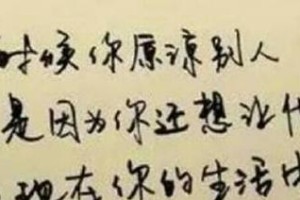 时候你原谅别人
是因为你还想让
现在你的生活